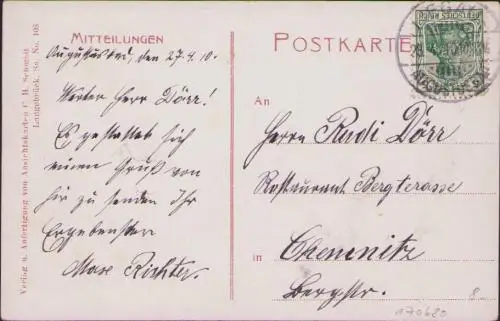 MITTEILUNGEN
Augustusbad, den 27.4.10.
Werter Herr Dörr!
Es gestattet sich
einen Gruß von
hir zu senden Ihr
Ergebenster
Max Richter.
POSTKARTE
DEUTSCHES REICH
AUGUSTUSBAD
An
Herrn Rudi Dörr
Restaurant Bergterasse
in Chemnitz
Bergstr.
170680
8.-
Verlag u. Anfertigung von Ansichtskarten C. H. Schmidt
Langebrück, Sa. No. 108